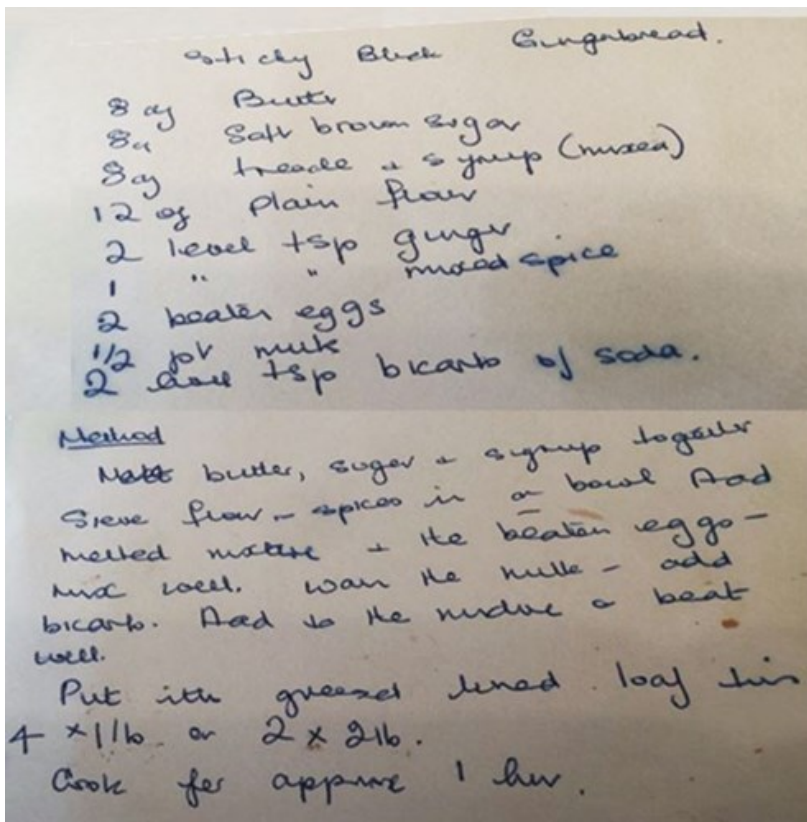 Sticky Black Gingerbread.
8 oz Butter
8 " Soft brown sugar
8 oz treacle + syrup (mixed)
12 oz plain flour
2 level tsp ginger
1 " " mixed spice
2 beaten eggs
1/2 pt milk
2 level tsp bicarb of soda.
Method
Melt butter, sugar + syrup together
Sieve flour - spices in a bowl Add
melted mixture + the beaten eggs -
mix well. Warm the milk - add
bicarb. Add to the mixture & beat
well.
Put into greased lined loaf tins
4 x 1lb or 2 x 2lb.
Cook for approx 1 hour.